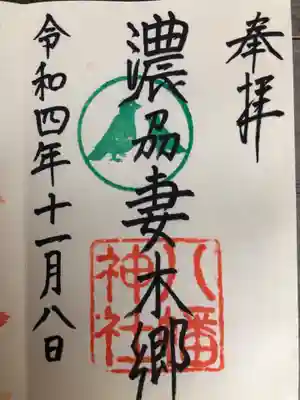 奉拝
濃刕妻木郷
八幡神社
令和四年十一月八日